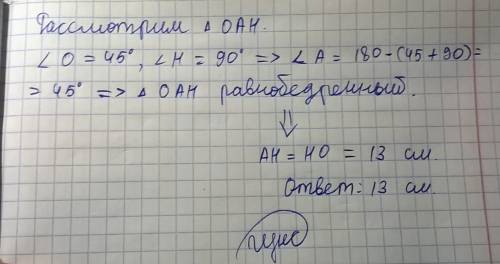 Рассмотрим △ OAH.
∠O = 45°, ∠H = 90° => ∠A = 180-(45+90)=
= 45° => △ OAH равнобедренный.
⇓
AH = HO = 13 см.
Ответ: 13 см.